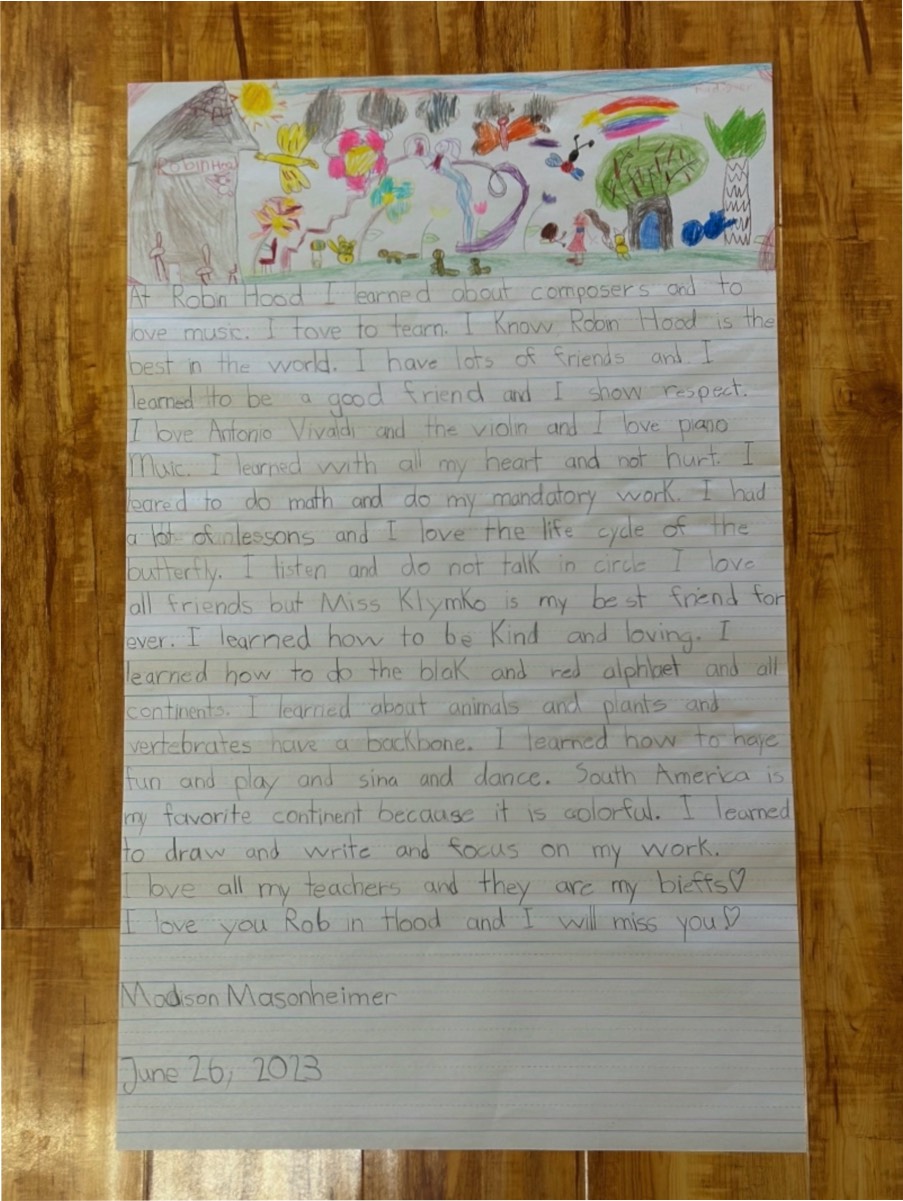 Robin Hood
At Robin Hood I learned about composers and to
love music. I love to learn. I Know Robin Hood is the
best in the world. I have lots of friends and I
learned to be a good friend and I show respect.
I love Antonio Vivaldi and the violin and I love piano
Muic. I learned with all my heart and not hurt. I
leared to do math and do my mandatory work. I had
a lot of lessons and I love the life cycle of the
butterfly. I listen and do not talk in circle I love
all friends but Miss Klymko is my best friend for
ever. I learned how to be Kind and loving. I
learned how to do the blak and red alphbet and all
continents. I learned about animals and plants and
vertebrates have a backbone. I learned how to have
fun and play and sing and dance. South America is
my favorite continent because it is colorful. I learned
to draw and write and focus on my work.
I love all my teachers and they are my bieffs♡
I love you Rob in Hood and I will miss you♡
Madison Masonheimer
June 26, 2023